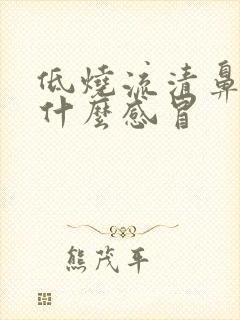 低燒流清鼻
什麼感冒
熊茂平